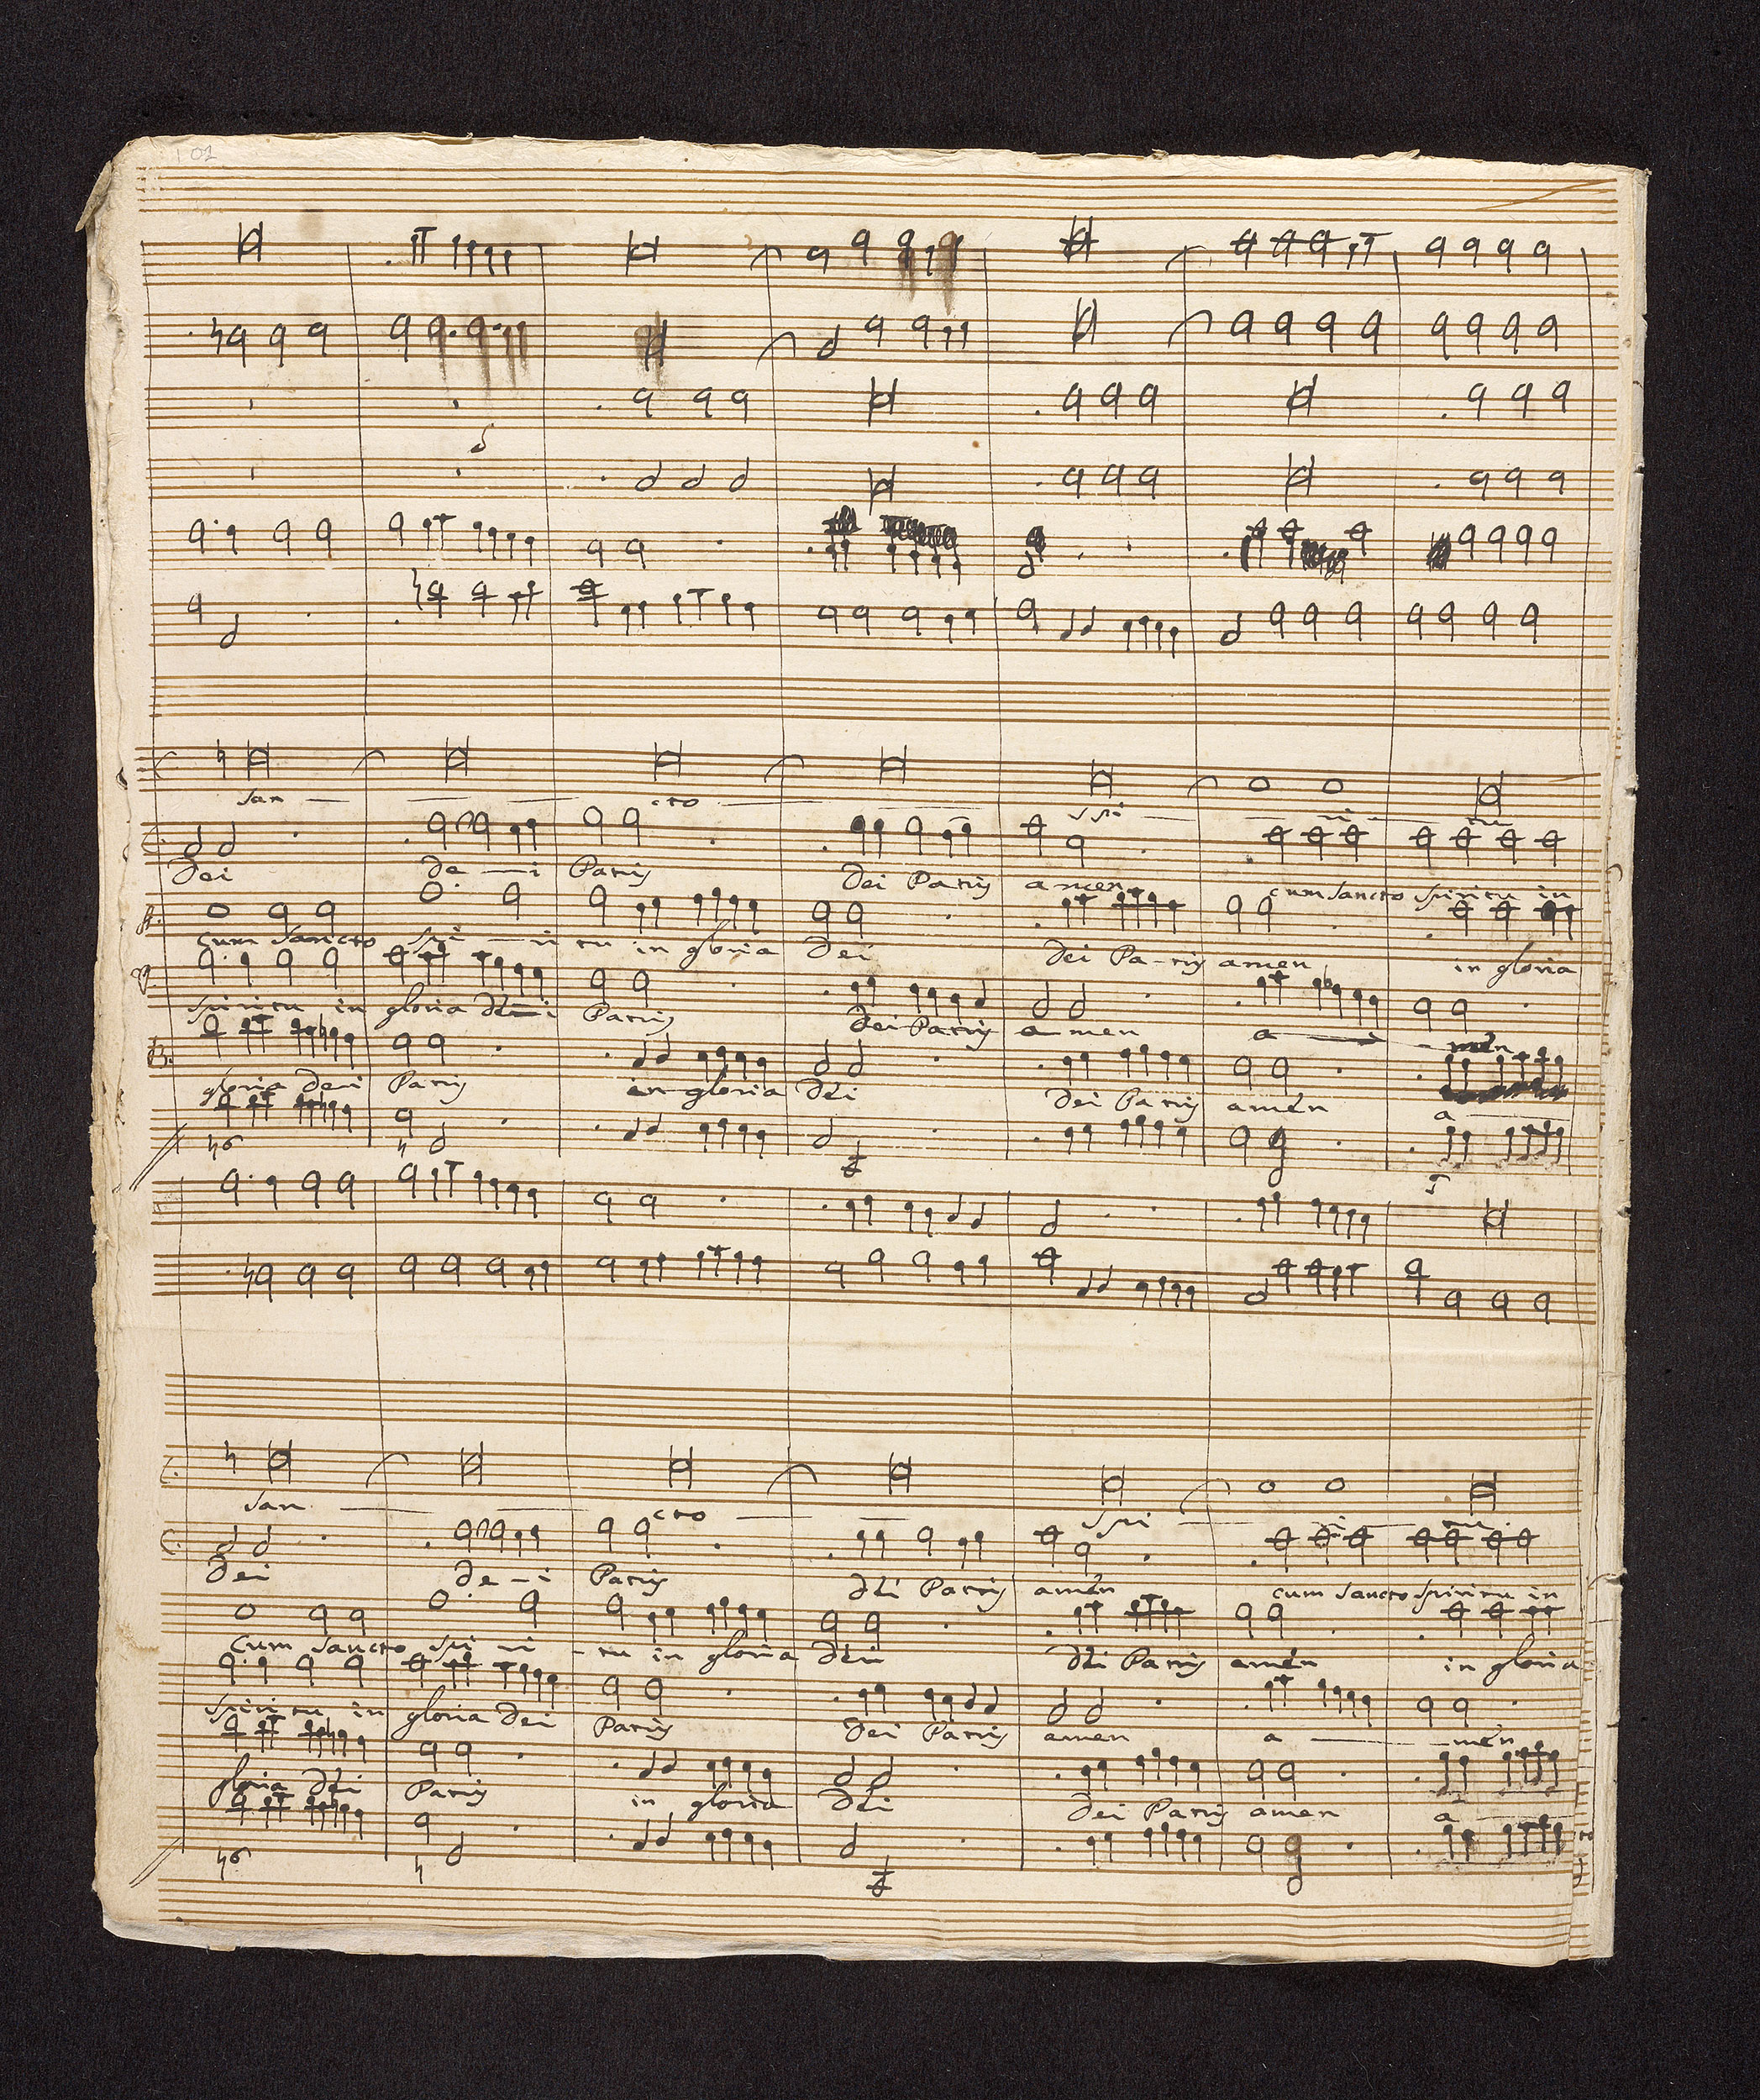 102
san cto spi ri tu
Dei de - i Patris Dei Patris amen cum sancto spiritu in
A. cum sancto spi - ri tu in gloria Dei Dei Pa - tris amen in gloria
spiritu in gloria dei Patris Dei Patris a - men a - men
B. gloria dei Patris in gloria Dei Dei Patris amen a
♮6 ♮
san cto spi ri tu
Dei de - i Patris dei Patris amen cum sancto spiritu in
cum sancto spi - ri - tu in gloria dei dei Patris amen in gloria
spiritu in gloria dei Patris Dei Patris amen a - men
gloria dei Patris in gloria Dei Dei Patris amen a
♮6 ♮